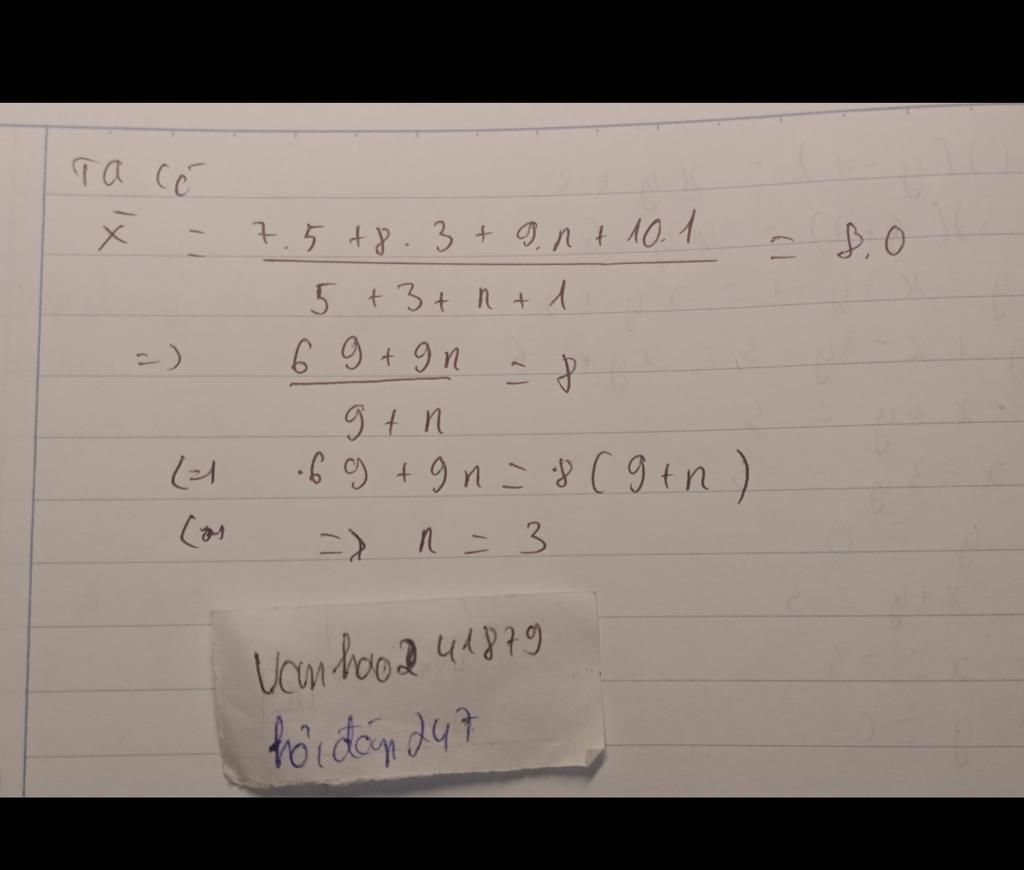 Ta có
x̄ = 7.5 + 8.3 + 9.n + 10.1 = 8.0
5 + 3 + n + 1
=> 69 + 9n = 8
9 + n
<=> 69 + 9n = 8(9+n)
<=> => n = 3
vanhao241879
hỏi đáp 247